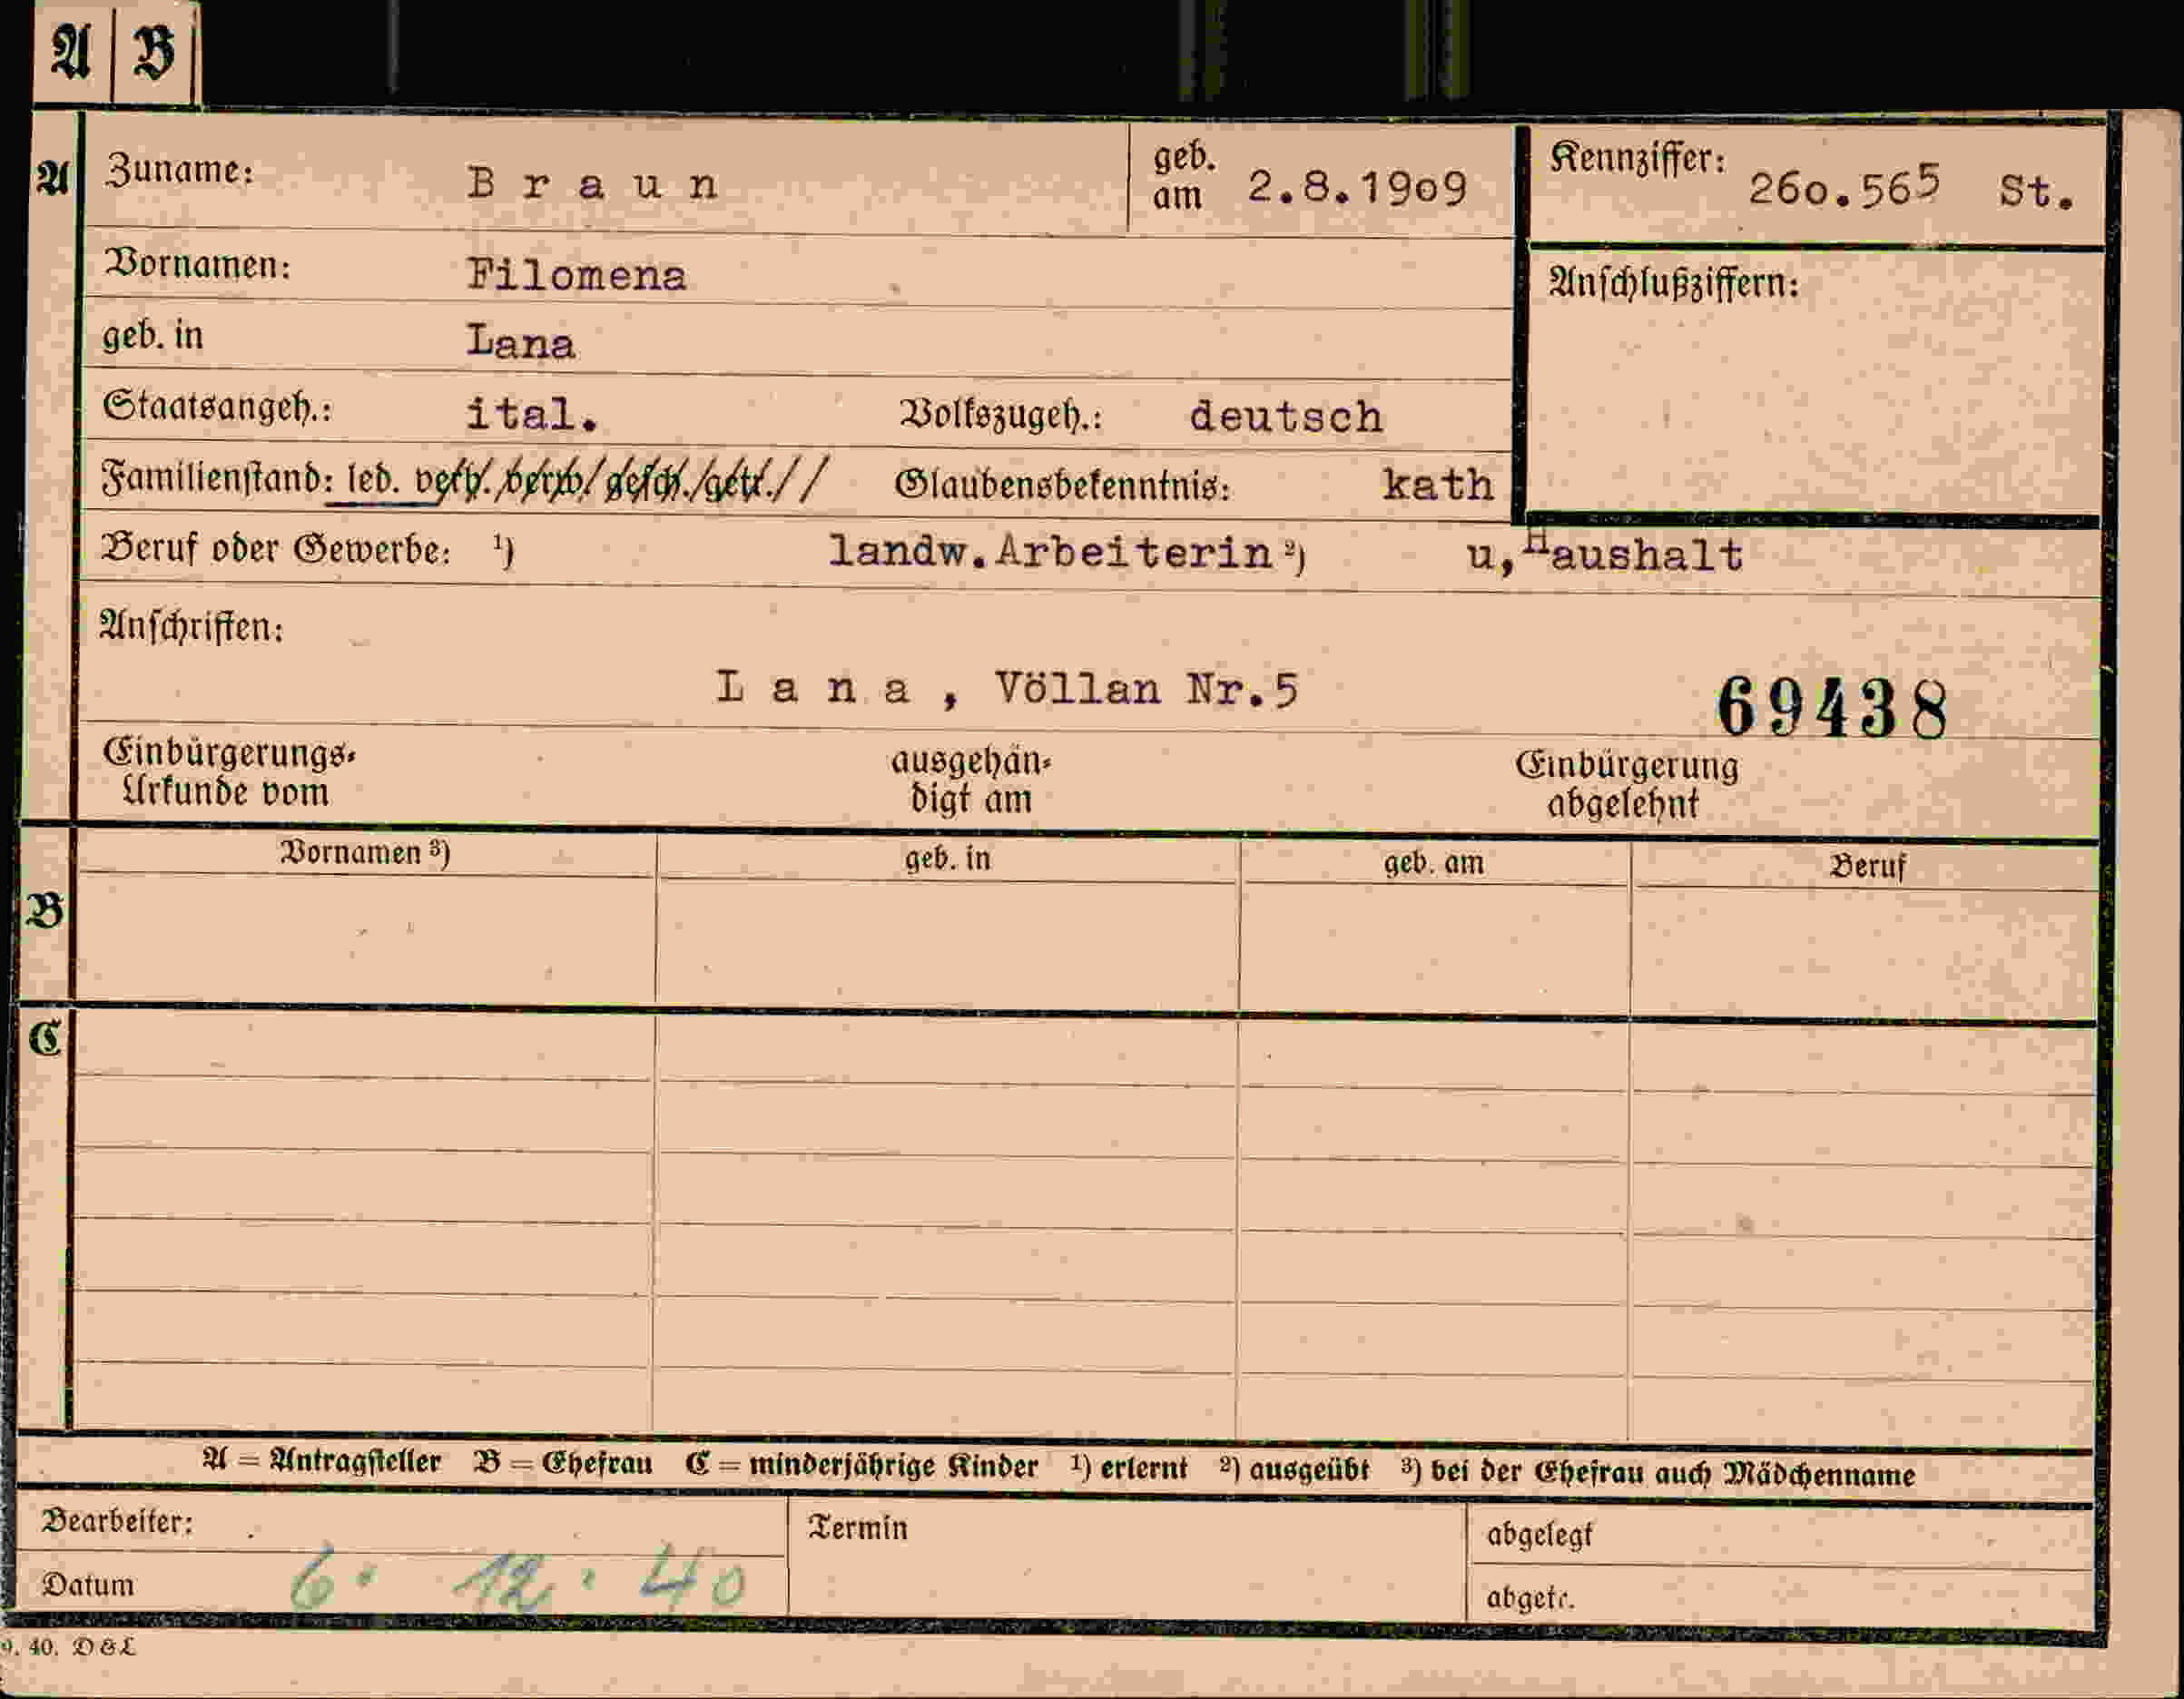 A B
A Zuname: Braun geb. am 2.8.1909 Kennziffer: 260.565 St.
Vornamen: Filomena Anschlußziffern:
geb. in Lana
Staatsangeh.: ital. Volkszugeh.: deutsch
Familienstand: led. verh. verw. gesch. getr. Glaubensbekenntnis: kath
Beruf oder Gewerbe: ¹) landw.Arbeiterin ²) u,Haushalt
Anschriften:
Lana, Völlan Nr.5 69438
Einbürgerungs- ausgehän- Einbürgerung
Urkunde vom digt am abgelehnt
Vornamen ³) geb. in geb. am Beruf
B
C
A = Antragsteller B = Ehefrau C = minderjährige Kinder ¹) erlernt ²) ausgeübt ³) bei der Ehefrau auch Mädchenname
Bearbeiter: Termin abgelegt
Datum 6. 12. 40 abgetr.
9. 40. D&L